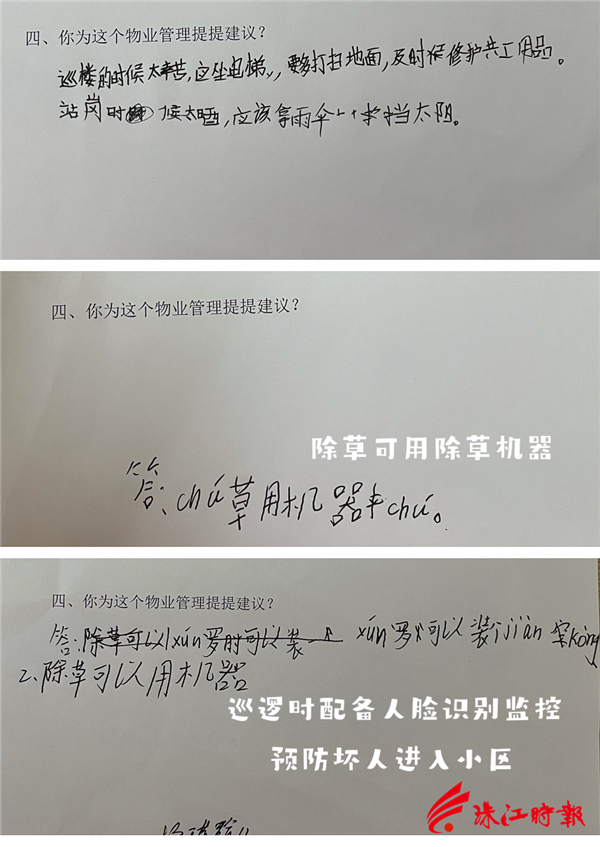 四、你为这个物业管理提提建议?
巡楼的时候太辛苦,应坐电梯,要多打扫地面,及时保修护共工用品。
站岗时候太晒,应该拿雨伞来挡太阳。
四、你为这个物业管理提提建议?
除草可用除草机器
答:chú草用机器来chú。
四、你为这个物业管理提提建议?
答:除草可以xún罗时可以装 xún罗可以装jiān空kòng
2、除草可以用机器
巡逻时配备人脸识别监控
预防坏人进入小区
珠江時報